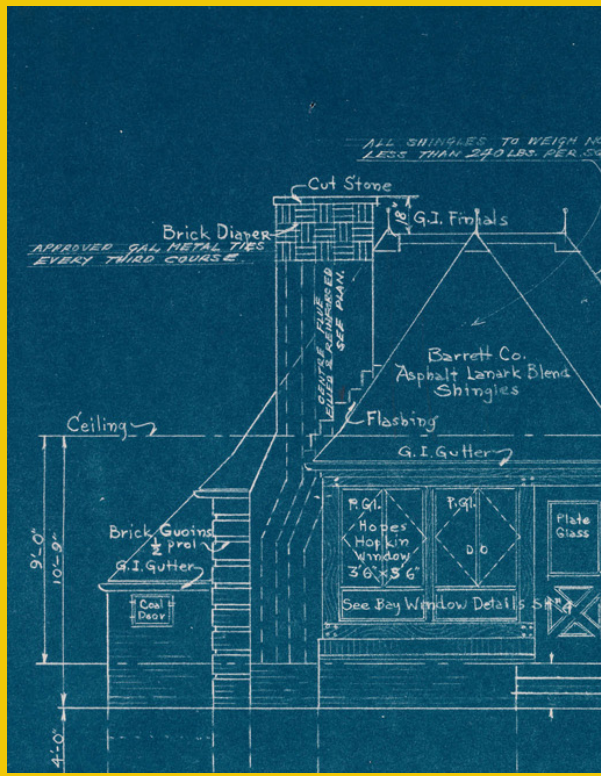 ALL SHINGLES TO WEIGH NO
LESS THAN 240 LBS. PER SQ
Cut Stone
18"
G.I. Finials
Brick Diaper
APPROVED GAL. METAL TIES
EVERY THIRD COURSE
CENTRE FLUE
FILLED & REINFORCED
SEE PLAN.
Barrett Co.
Asphalt Lanark Blend
Shingles
Ceiling
Flashing
G.I. Gutter
9'-0"
10'-9"
Brick Quoins
½ proj.
G.I. Gutter
Coal
Door
P.Gl.
P.Gl.
Hopes
Hopkin
Window
3'6" x 3'6"
D O
Plate
Glass
See Bay Window Details SH #4
4'-0"